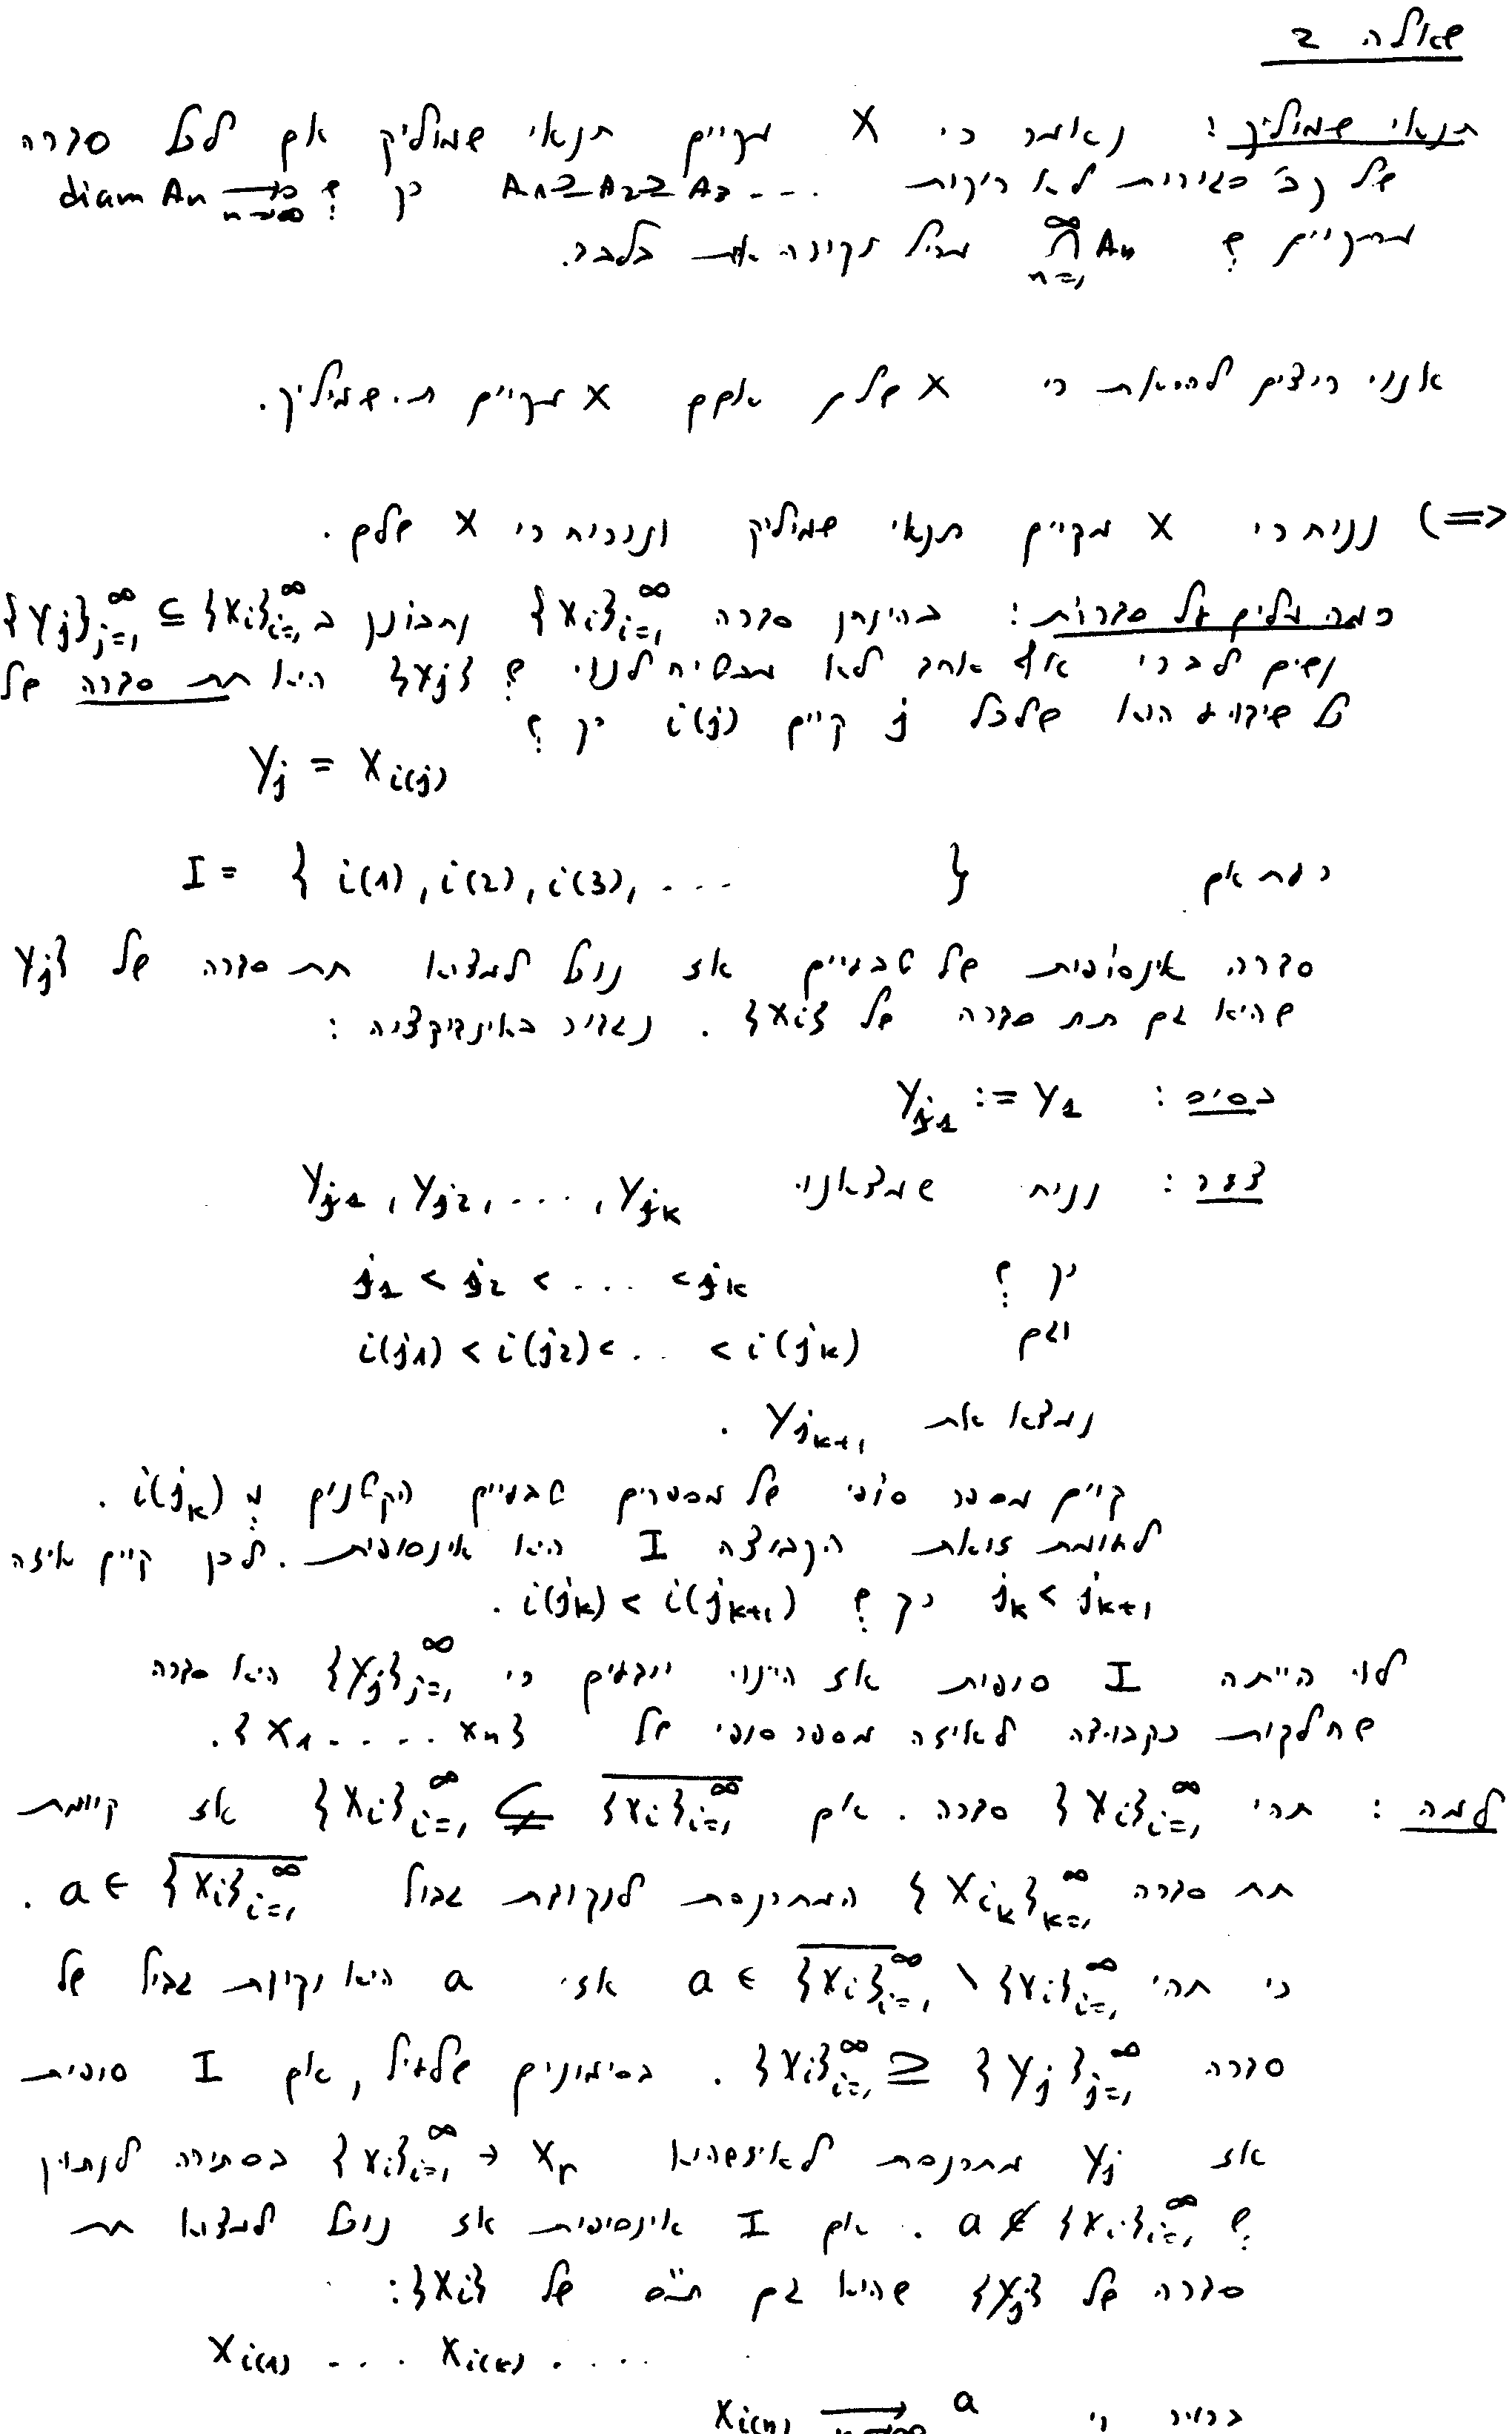 שאלה 2
תנאי שמוליק: נאמר כי X מקיים תנאי שמוליק אם לכל סדרה
של קב' סגורות לא ריקות A₁⊇A₂⊇A₃... כך ש diam Aₙ ⟶ 0 n→∞
מתקיים ש ⋂_{n=1}^∞ Aₙ מכיל נקודה אחת בלבד.
אנו רוצים להראות כי X שלם אםם X מקיים ת. שמוליק.
(⇐ נניח כי X מקיים תנאי שמוליק ונוכיח כי X שלם.
כמה מלים על סדרות: בהינתן סדרה {xᵢ}_{i=1}^∞ נתבונן ב {yⱼ}_{j=1}^∞ ⊆ {xᵢ}_{i=1}^∞
נשים לב כי אף אחד לא מבטיח לנו ש {yⱼ} היא תת סדרה של
כל שידוע הוא שלכל j קיים i(j) כך ש
yⱼ = x_{i(j)}
כעת אם I = { i(1), i(2), i(3), ... }
סדרה אינסופית של טבעיים אז נוכל למצוא תת סדרה של {yⱼ
שהיא גם תת סדרה של {xᵢ}. נגדיר באינדוקציה:
בסיס: y_{j₁} := y₁
צעד: נניח שמצאנו y_{j₁}, y_{j₂}, ..., y_{jₖ}
כך ש j₁ < j₂ < ... < jₖ
וגם i(j₁) < i(j₂) < ... < i(jₖ)
נמצא את y_{jₖ₊₁}.
קיים מספר סופי של מספרים טבעיים הקטנים מ i(jₖ).
לעומת זאת הקבוצה I היא אינסופית. לכן קיים איזה
jₖ < jₖ₊₁ כך ש i(jₖ) < i(jₖ₊₁).
לו הייתה I סופית אז היינו יודעים כי {yⱼ}_{j=1}^∞ היא סדרה
שחלקות כקבוצה לאיזה מספר סופי של {x₁....xₙ}.
למה: תהי {xᵢ}_{i=1}^∞ סדרה. אם {xᵢ}_{i=1}^∞ ⊊ \overline{{xᵢ}_{i=1}^∞} אז קיימת
תת סדרה {x_{iₖ}}_{k=1}^∞ המתכנסת לנקודת גבול a ∈ \overline{{xᵢ}_{i=1}^∞}.
כי תהי a ∈ \overline{{xᵢ}_{i=1}^∞} \ {xᵢ}_{i=1}^∞ אזי a היא נקודת גבול של
סדרה {yⱼ}_{j=1}^∞ ⊆ {xᵢ}_{i=1}^∞. בסימונים שלעיל, אם I סופית
אז yⱼ מתכנסת לאיזשהוא xᵣ ∈ {xᵢ}_{i=1}^∞ בסתירה לנתון
ש a ∉ {xᵢ}_{i=1}^∞. אם I אינסופית אז נוכל למצוא תת
סדרה של {yⱼ} שהיא גם ת"ס של {xᵢ}:
x_{i(1)} .... x_{i(k)} ....
ברור כי x_{i(n)} ⟶ a n→∞